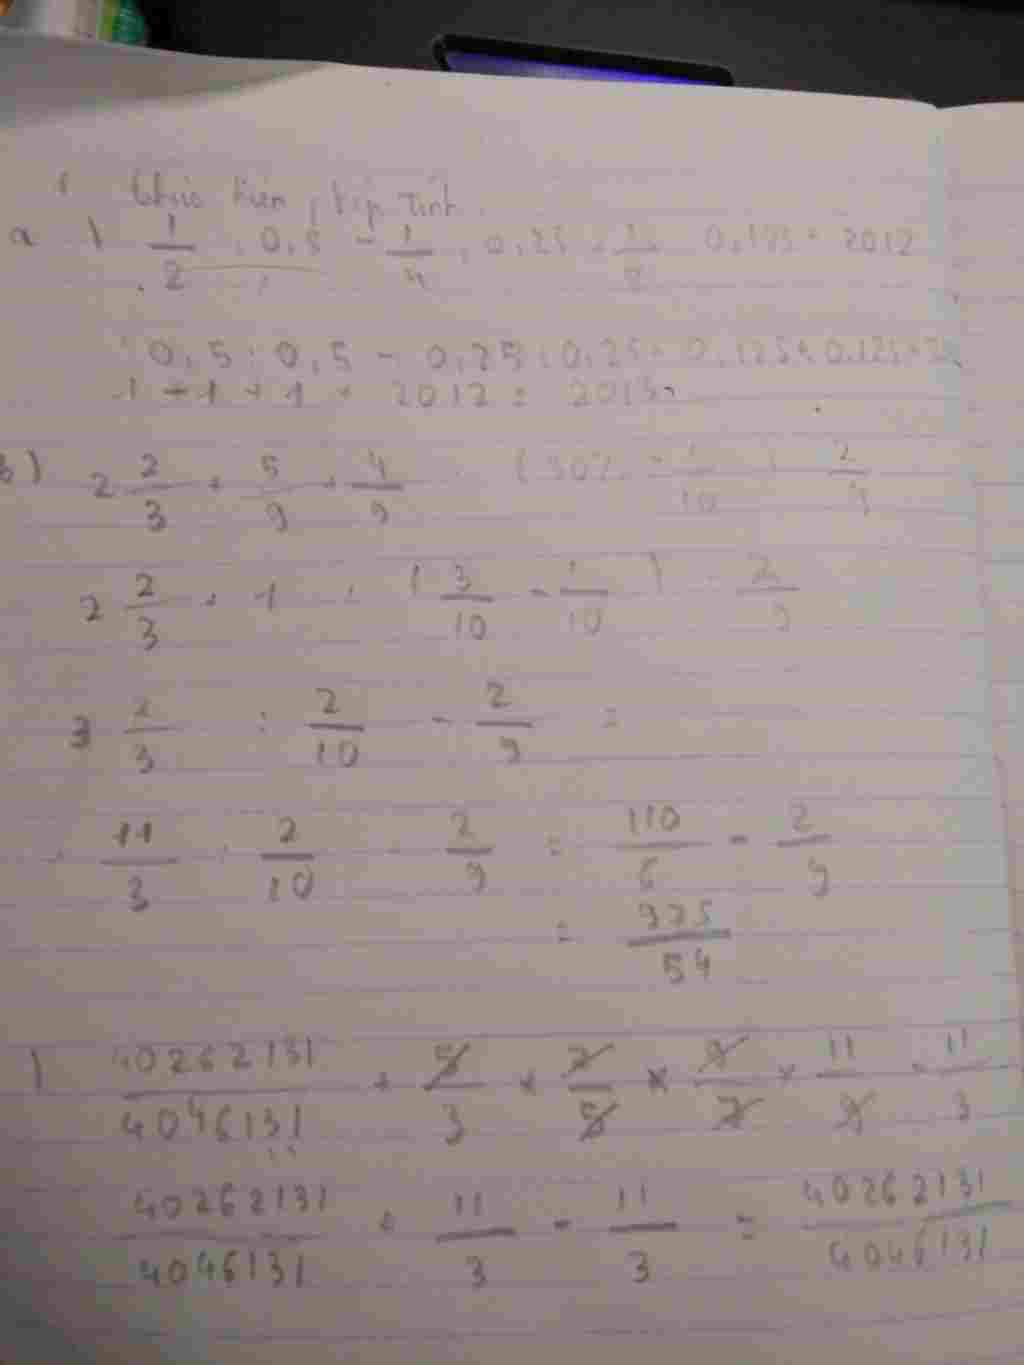 1 Thực hiện phép tính
a) 1/2 : 0,5 - 1/4 : 0,25 + 1/8 : 0,125 + 2012
0,5 : 0,5 - 0,25 : 0,25 + 0,125 : 0,125 +
1 - 1 + 1 + 2012 = 2013
b) 2 2/3 + 5/9 + 4/9 : (30% - 1/10) - 2/9
2 2/3 + 1 : (3/10 - 1/10) - 2/9
3 2/3 : 2/10 - 2/9 =
11/3 : 2/10 - 2/9 = 110/6 - 2/9
= 975/54
) 40262131/4046131 + 5/3 × 7/5 × 9/7 × 11/9 - 11/3
40262131/4046131 + 11/3 - 11/3 = 40262131/4046131